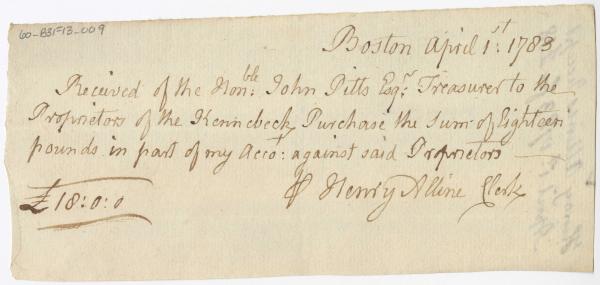 60-B31F13-009
Boston April 1st: 1783
Received of the Honble: John Pitts Esqr. Treasurer to the
Proprietors of the Kennebeck Purchase the Sum of Eighteen
pounds in part of my Accot: against said Proprietors
£18:0:0
Henry Alline Clerk